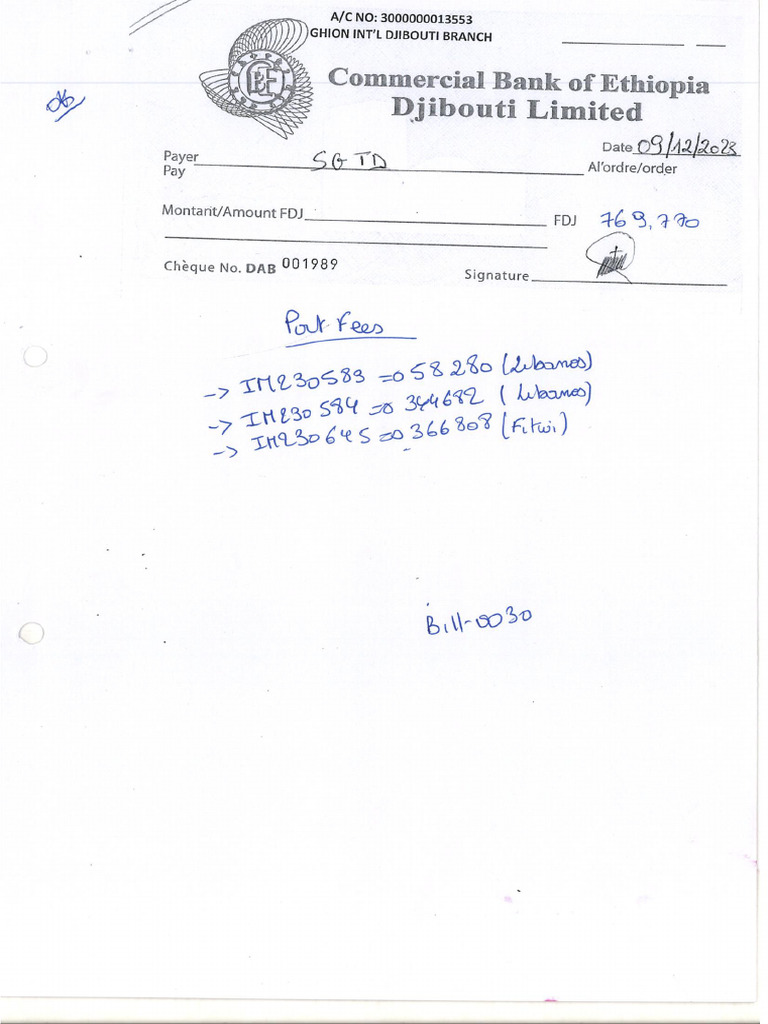 A/C NO: 3000000013553
GHION INT'L DJIBOUTI BRANCH
Commercial Bank of Ethiopia
Djibouti Limited
Date 09/12/2023
Payer SGTD
Pay
Al'ordre/order
Montant/Amount FDJ
FDJ 769,770
Chèque No. DAB 001989
Signature
Port Fees
-> IM230583 => 58280 (Libanos)
-> IM230584 => 344682 (Libanos)
-> IM230645 => 366808 (Fitwi)
Bill-0030